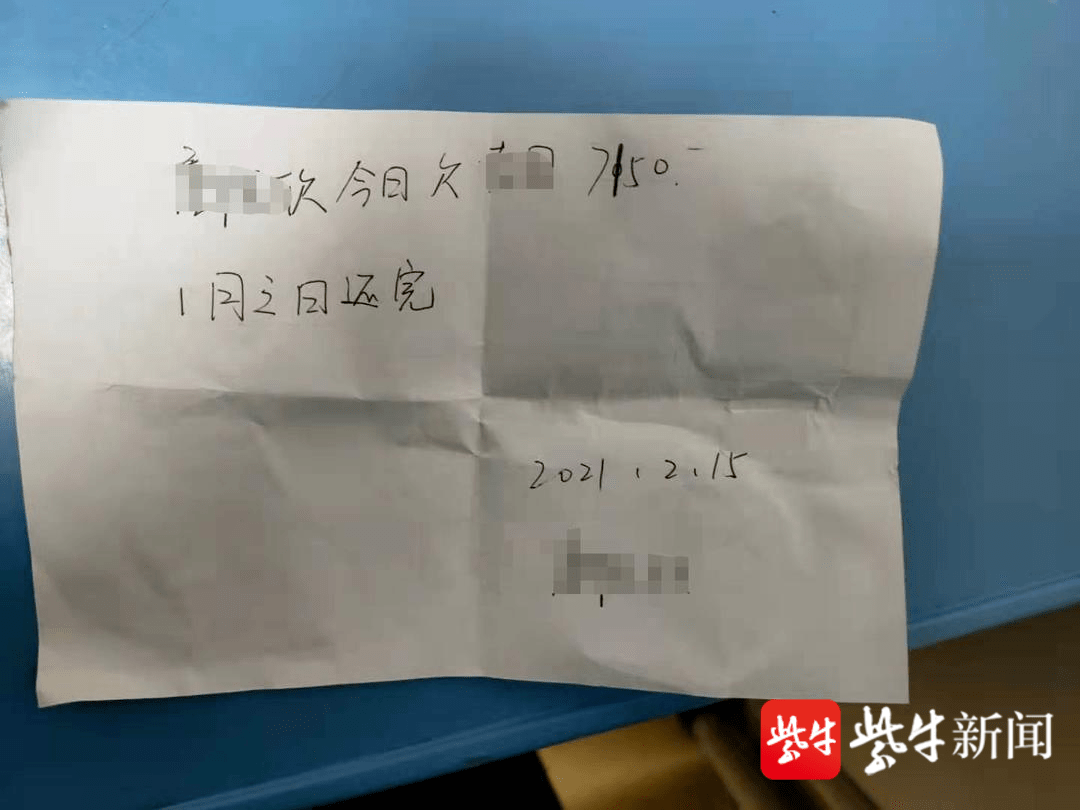 欣今日欠 7150.
1月之日还完
2021.2.15
紫牛 紫牛新闻